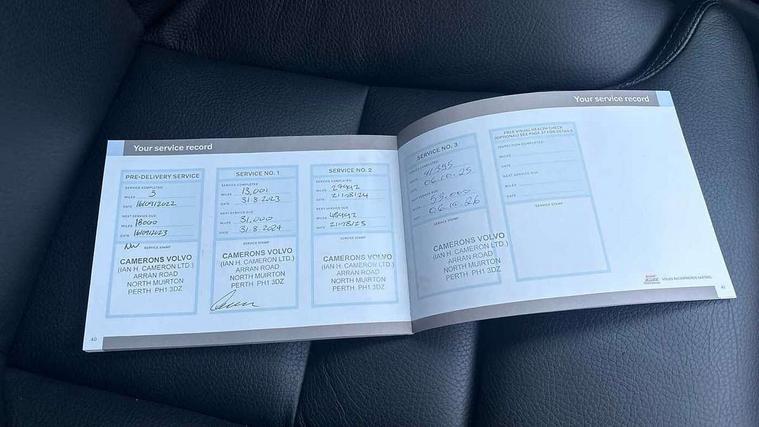 Your service record
PRE-DELIVERY SERVICE
SERVICE COMPLETED
MILES 3
DATE 16/09/2022
NEXT SERVICE DUE
MILES 18000
DATE 16/09/2023
SERVICE STAMP
CAMERONS VOLVO
(IAN H. CAMERON LTD.)
ARRAN ROAD
NORTH MUIRTON
PERTH PH1 3DZ
40
SERVICE NO. 1
SERVICE COMPLETED
MILES 13,001
DATE 31.8.2023
NEXT SERVICE DUE
MILES 31,000
DATE 31.8.2024
SERVICE STAMP
CAMERONS VOLVO
(IAN H. CAMERON LTD.)
ARRAN ROAD
NORTH MUIRTON
PERTH PH1 3DZ
SERVICE NO. 2
SERVICE COMPLETED
MILES
DATE 21/08/24
NEXT SERVICE DUE
MILES
DATE 21/08/25
SERVICE STAMP
CAMERONS VOLVO
(IAN H. CAMERON LTD.)
ARRAN ROAD
NORTH MUIRTON
PERTH PH1 3DZ
Your service record
SERVICE NO. 3
SERVICE COMPLETED
MILES 41,395
DATE 06.10.25
NEXT SERVICE DUE
MILES
DATE 06.10.26
SERVICE STAMP
CAMERONS VOLVO
(IAN H. CAMERON LTD.)
ARRAN ROAD
NORTH MUIRTON
PERTH PH1 3DZ
FREE VISUAL HEALTH CHECK
(OPTIONAL) SEE PAGE 37 FOR DETAILS
INSPECTION COMPLETED
MILES
DATE
NEXT SERVICE DUE
MILES
DATE
SERVICE STAMP
41